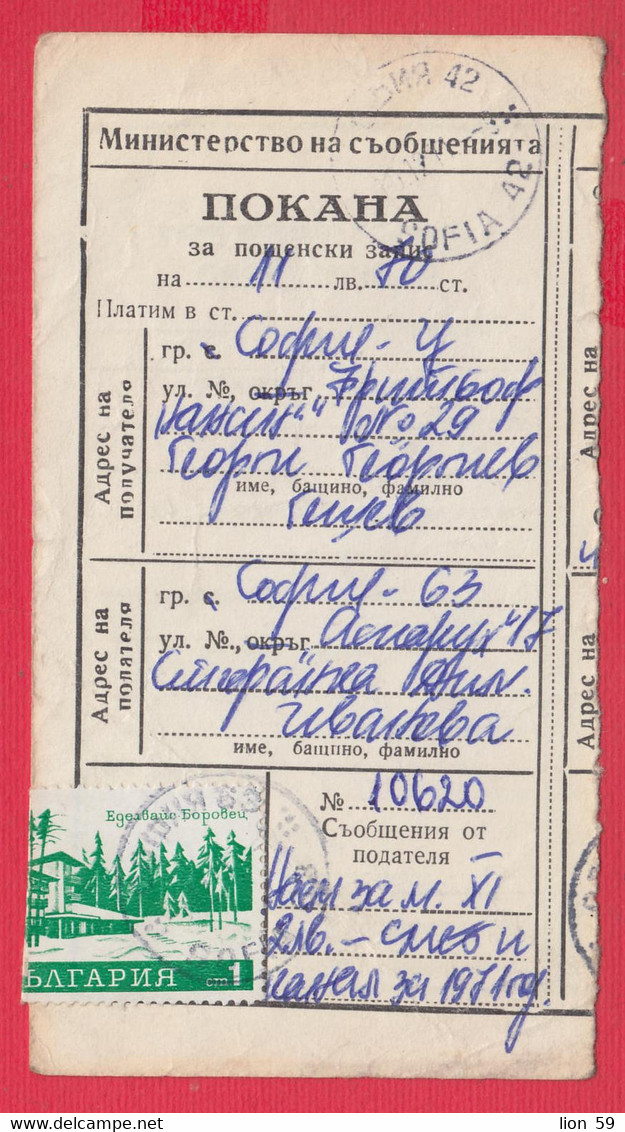 СОФИЯ 42
SOFIA 42
Министерство на съобщенията
ПОКАНА
за пощенски запис
на 11 лв. 70 ст.
Платим в ст.
Адрес на получателя
гр. с. София - Ц
ул. №, окръг Фритьоф
Нансен" № 29
Георги Георгиев
име, бащино, фамилно
Гешев
Адрес на подателя
гр. с. София - 63
ул. №, окръг Аспарух" 17
Стефанка Дим.
Иванова
име, бащино, фамилно
Адрес на
Адрес на
Еделвайс-Боровец
БЪЛГАРИЯ ст 1
СОФИЯ 63
№ 10620
Съобщения от
подателя
Наем за м. XI
2лв. - смет и
канал за 1971 год.
lion 59